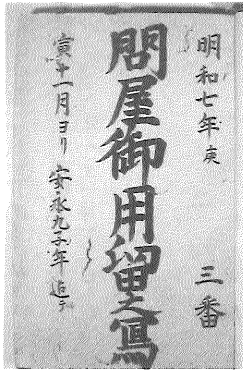 明和七年庚
三番
問屋御用留之寫
寅十一月ヨリ安永九子年迄テ